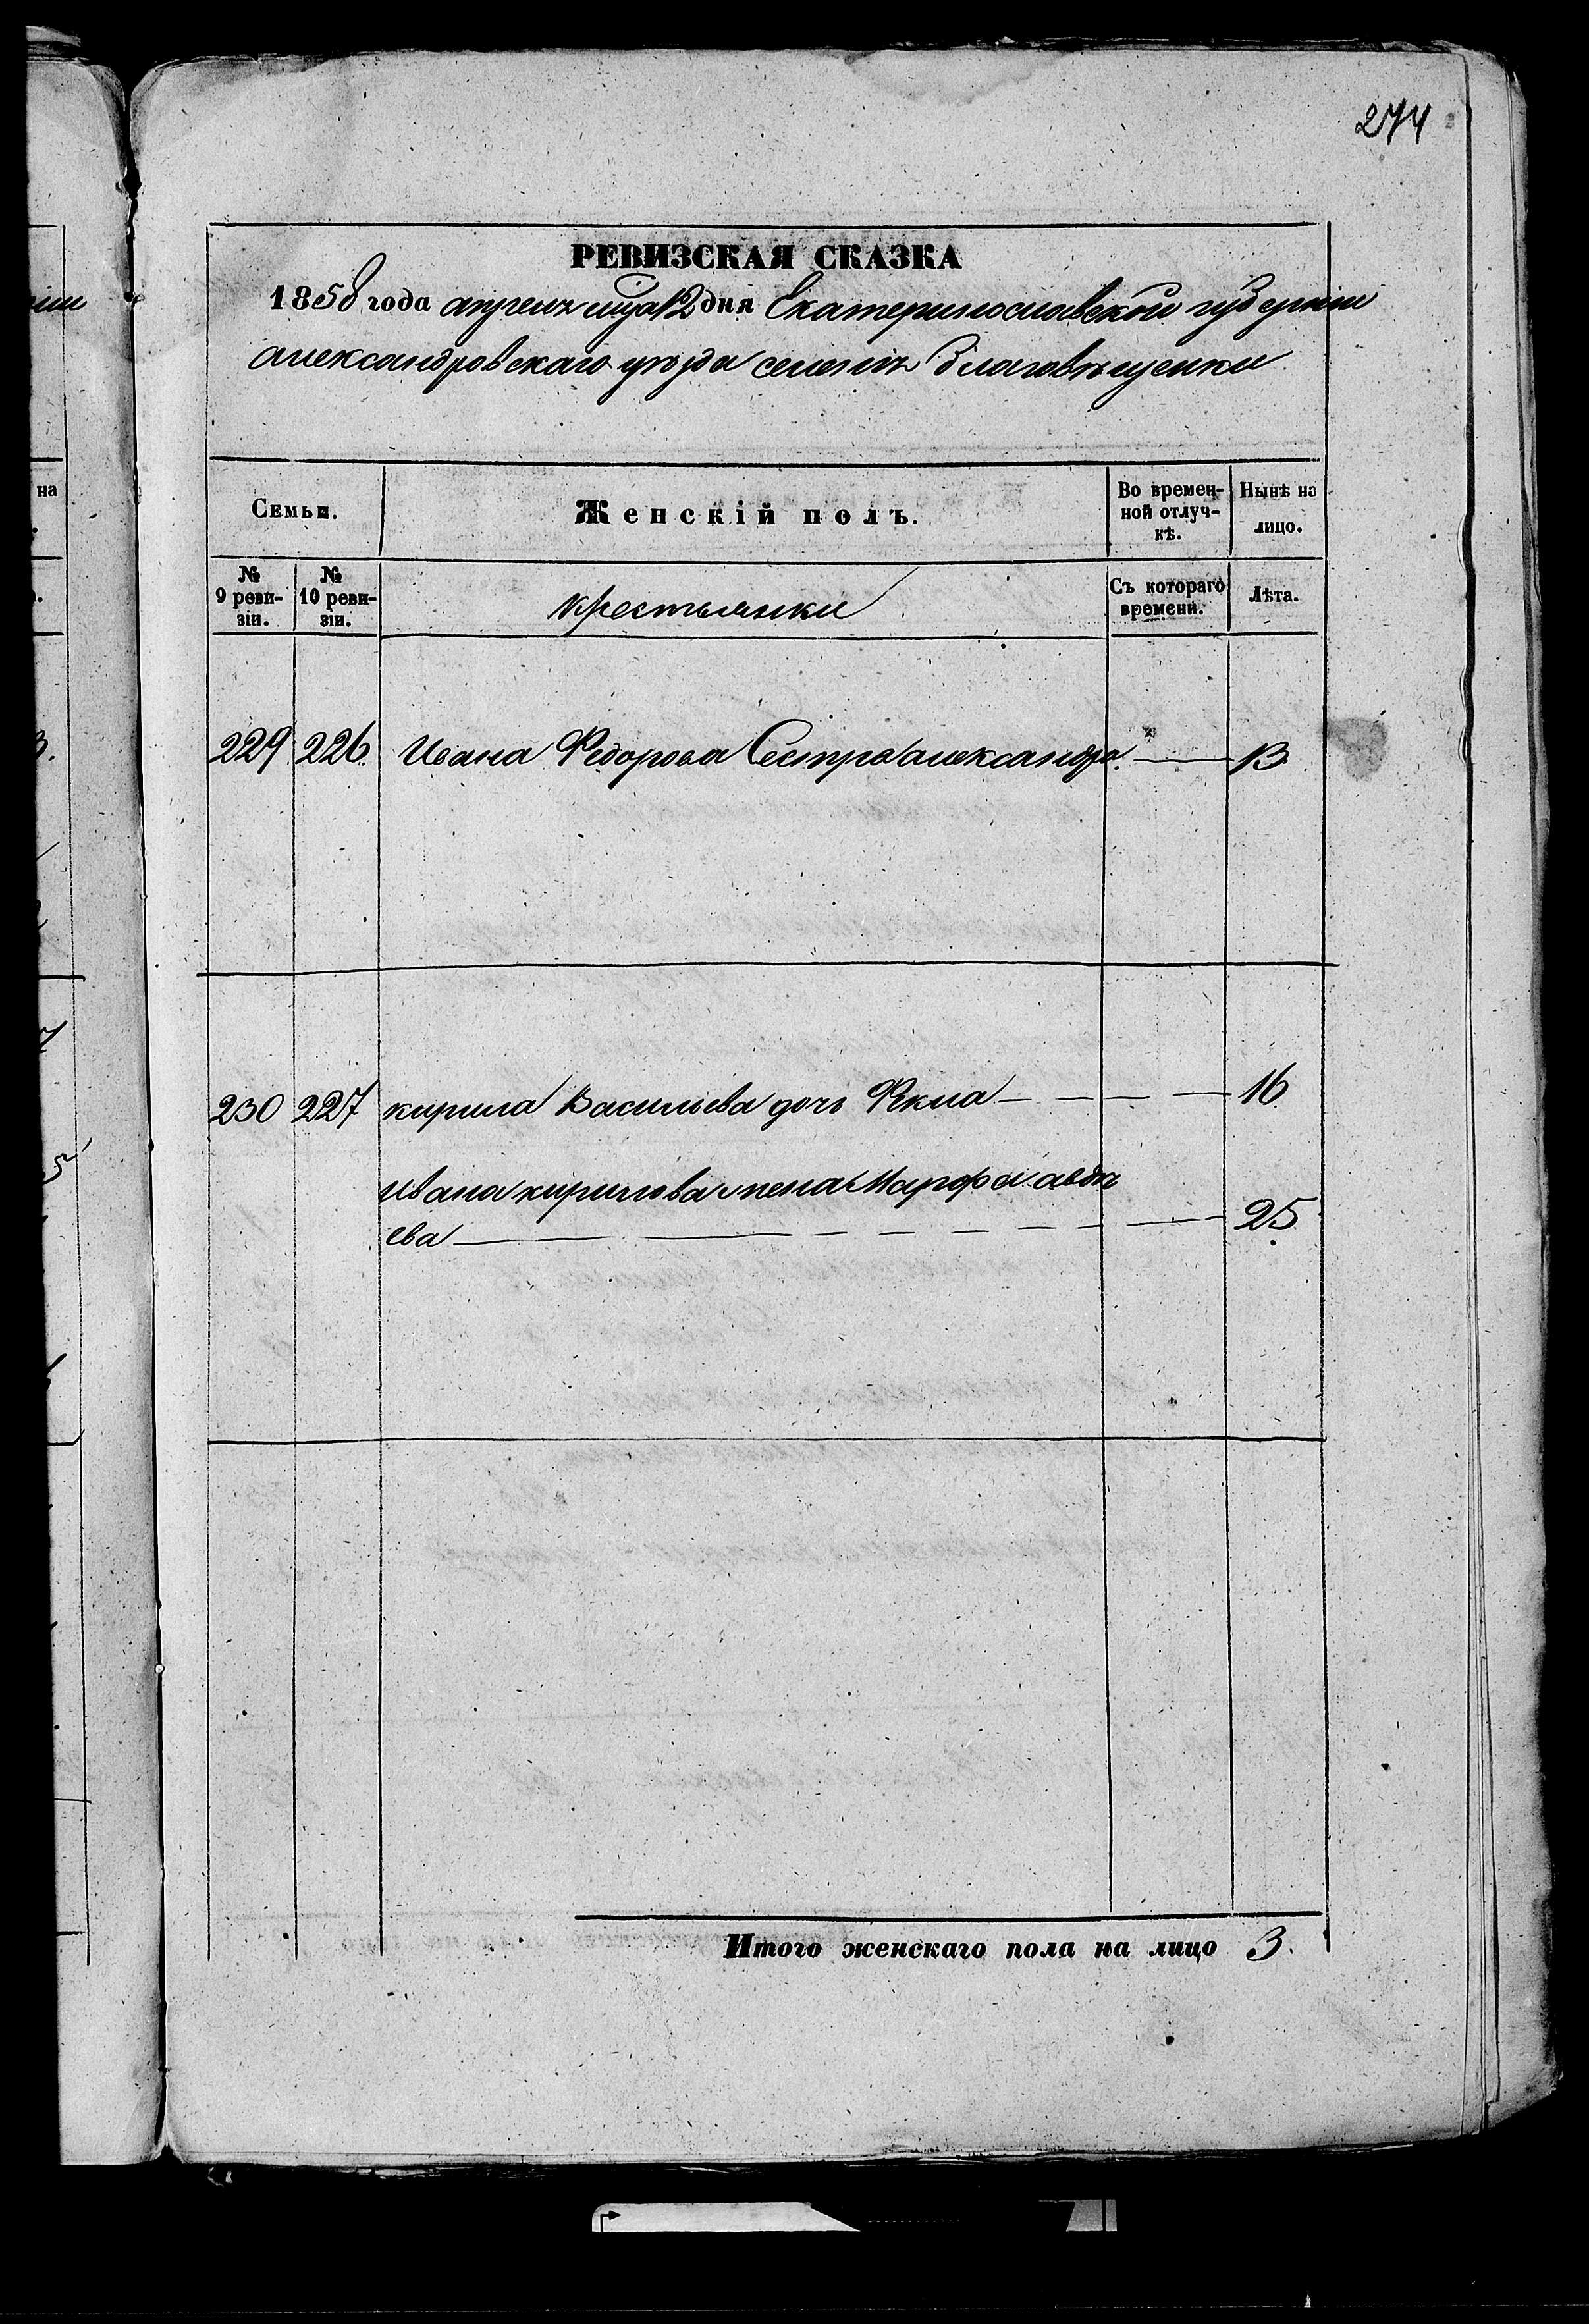 274
РЕВИЗСКАЯ СКАЗКА
1858 года апреля мца 12 дня Екатеринославской губернии
александровскаго уѣзда селенія Благовѣщенки
на
Семьи.
Женскій полъ.
Во времен-
ной отлуч-
кѣ.
Нынѣ на
лицо.
№
9 реви-
зіи.
№
10 реви-
зіи.
крестьянки
Съ котораго
времени.
Лѣта.
229 226 Ивана Федорова Сестра александра. — 13
230 227 кирила Васильева дочь Фекла — — — 16
Ивана кирилова жена Марфа авдѣ
ева — — — — — — 25
Итого женскаго пола на лицо 3.